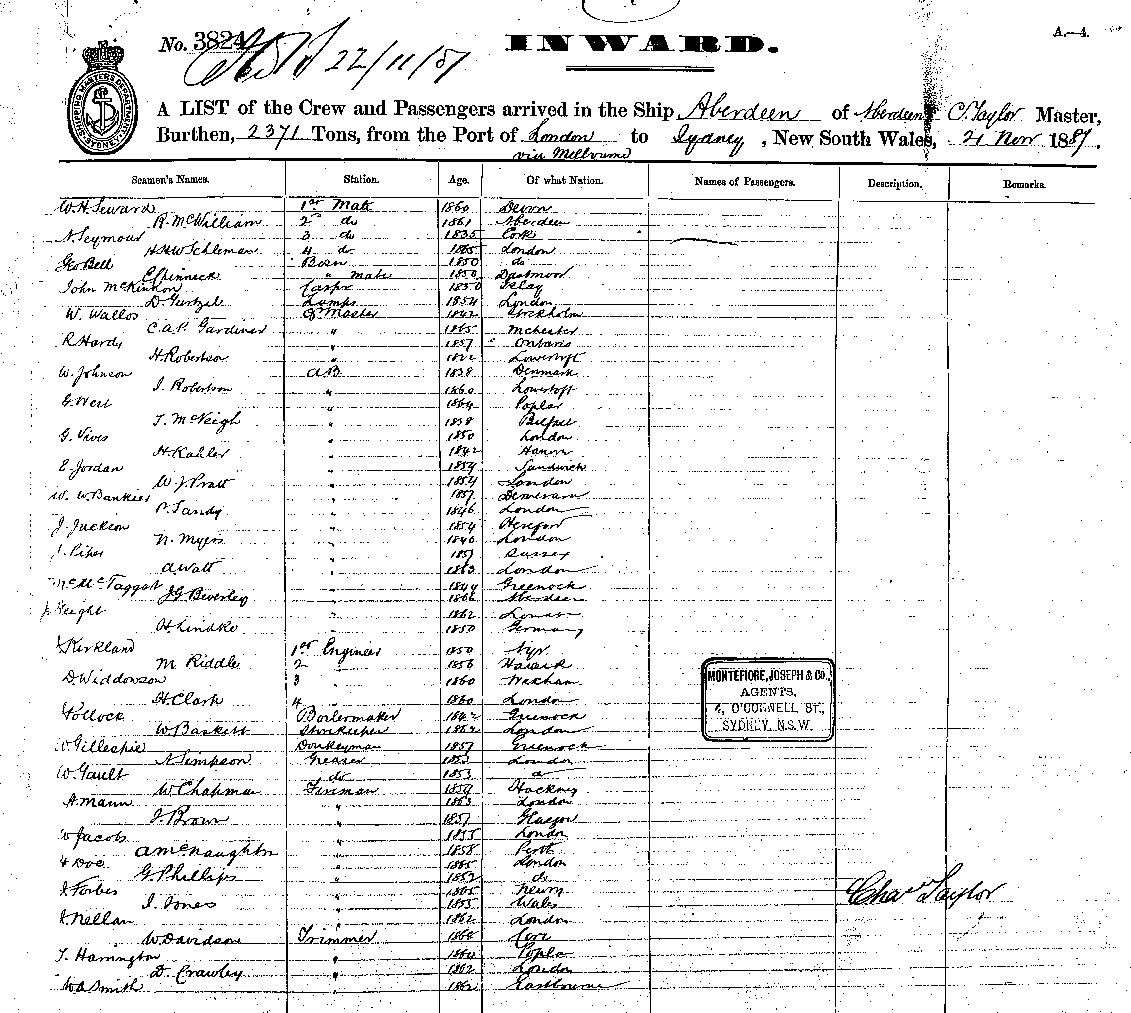 No. 3824
22/11/87
INWARD.
A.—4.
SHIPPING MASTERS DEPARTMENT SYDNEY.
A LIST of the Crew and Passengers arrived in the Ship Aberdeen of Aberdeen C. Taylor Master,
Burthen, 2371 Tons, from the Port of London to Sydney, New South Wales, 21 Nov 1887.
via Melbourne
Seamen's Names. Station. Age. Of what Nation. Names of Passengers. Description. Remarks.
W. H. Seward 1st Mate 1860 Devon
R. McWilliam 2nd do 1861 Aberdeen
N. Seymour 3 do 1835 Cork
4 do 1865 London
Geo Bell Bosn 1850 do
E. Pinneck " mate 1850 Dartmoor
John McKinnon 1850 Islay
Lamps 1854 London
W. Wallos Qr Master 1842 Stockholm
C. A. P. Gardiner " 1865 Mchester
R. Hardy " 1857 Ontario
H. Robertson " 1822 Lowestoft
W. Johnson AB 1838 Denmark
J. Robertson " 1860 Lowestoft
G. West " 1864 Poplar
T. McVeigh " 1838 Belfast
G. Vives " 1850 London
H. Kahler " 1842
E. Jordan " 1854 Sandwich
W. J. Pratt " 1854 London
W. W. Bankier " 1857 Demerara
P. Tandy " 1846 London
J. Jackson " 1854 Hereford
N. Myers " 1840 London
J. Piper " 1857 Sussex
A Watt " 1863 London
McTaggart " 1844 Greenock
J. G. Beverley " 1866 Aberdeen
" 1862 London
H. Lindke " 1850 Germany
Kirkland 1st Engineer 1850 Ayr
M Riddle 2 " 1856 Hawick
D. Widdowson 3 " 1860 Wrexham
H. Clark 4 " 1860 London
Pollock Boilermaker 1842 Greenock
W Baskett Storekeeper 1862 London
Gillespie Donkeyman 1857 Greenock
N. Simpson Greaser 1853 London
W. Gault do 1853
W Chapman Fireman 1859 Hackney
A. Mann " 1863 London
J. Brown " 1857 Glasgow
Jacobs " 1855 London
A McNaughton " 1858 Perth
Doe " 1865 London
G. Phillips " 1852 do
Forbes " 1865 Newry
J. Jones " 1855 Wales
" 1862 London
W Davidson Trimmer 1868
T. Harrington " 1860 Poplar
D. Crawley " 1862 London
W A Smith " 1862 Eastbourne
MONTEFIORE, JOSEPH & CO.,
AGENTS,
4, O'CONNELL ST.,
SYDNEY, N.S.W.
Chas Taylor